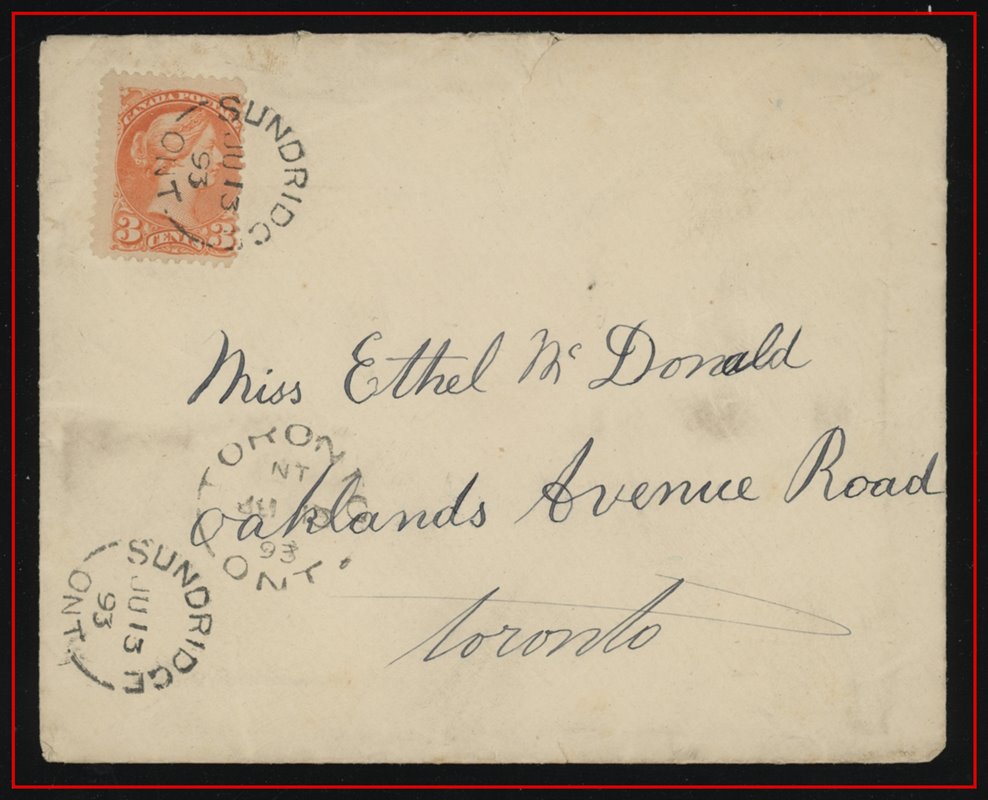 CANADA POSTAGE
3 CENTS 3
SUNDRIDGE
JU 13
93
ONT.
Miss Ethel Mc Donald
Oaklands Avenue Road
Toronto
TORONTO
NT
93
ONT.
SUNDRIDGE
JU 13
93
ONT.